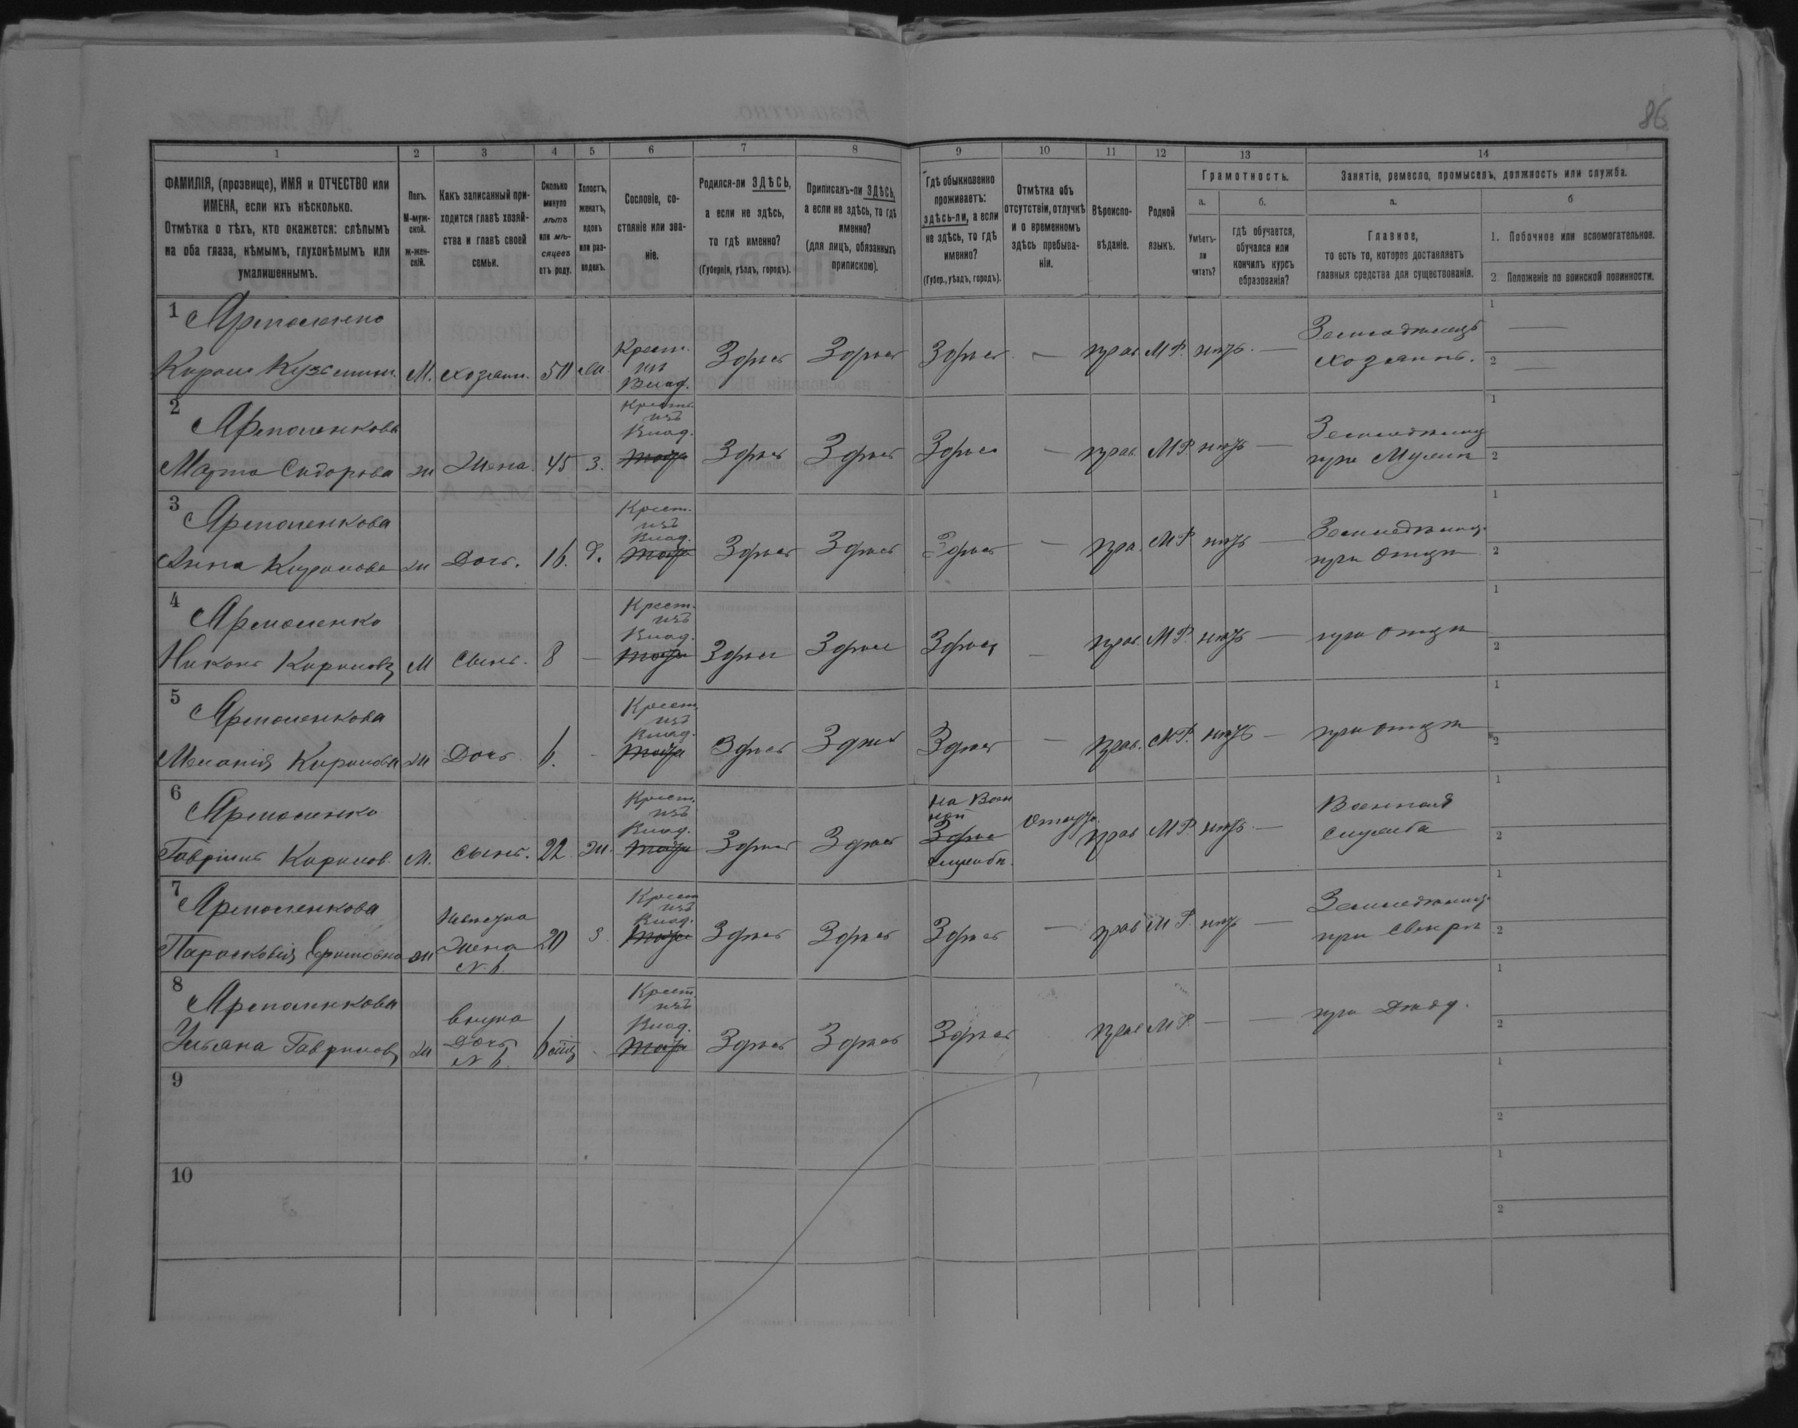 86
1 2 3 4 5 6 7 8 9 10 11 12 13 14
ФАМИЛІЯ, (прозвище), ИМЯ и ОТЧЕСТВО или
ИМЕНА, если ихъ нѣсколько.
Отмѣтка о тѣхъ, кто окажется: слѣпымъ
на оба глаза, нѣмымъ, глухонѣмымъ или
умалишеннымъ.
Полъ.
М-муж-
ской.
Ж-жен-
скій.
Какъ записанный при-
ходится главѣ хозяй-
ства и главѣ своей
семьи.
Сколько
минуло
лѣтъ
или мѣ-
сяцевъ
отъ роду.
Холостъ,
женатъ,
вдовъ
или раз-
веденъ.
Сословіе, со-
стояніе или зва-
ніе.
Родился-ли ЗДѢСЬ,
а если не здѣсь,
то гдѣ именно?
(Губернія, уѣздъ, городъ).
Приписанъ-ли ЗДѢСЬ,
а если не здѣсь, то гдѣ
именно?
(для лицъ, обязанныхъ
припискою).
Гдѣ обыкновенно
проживаетъ:
здѣсь-ли, а если
не здѣсь, то гдѣ
именно?
(Губер., уѣздъ, городъ).
Отмѣтка объ
отсутствіи, отлучкѣ
и о временномъ
здѣсь пребыва-
ніи.
Вѣроиспо-
вѣданіе.
Родной
языкъ.
Грамотность.
а.
Умѣетъ-
ли
читать?
б.
гдѣ обучается,
обучался или
кончилъ курсъ
образованія?
Занятіе, ремесло, промыселъ, должность или служба.
а.
Главное,
то есть то, которое доставляетъ
главныя средства для существованія.
б
1. Побочное или вспомогательное.
2. Положеніе по воинской повинности.
1 Ярмоленко
Кирилъ Кузьминъ М. хозяин. 50 Крест. изъ Влад. Здѣсь Здѣсь Здѣсь — прав. М.Р. нѣтъ — Земледѣлецъ хозяинъ. 1 — 2 —
2 Ярмоленкова
Марта Сидорова ж Жена 45 З. Крест. изъ Влад. Здѣсь Здѣсь Здѣсь — прав. М.Р. нѣтъ — Земледѣлец при Мужѣ 1 2
3 Ярмоленкова
Анна Кирилова ж Дочь. 16. Д. Крест. изъ Влад. Здѣсь Здѣсь Здѣсь — пра. М.Р. нѣтъ — Земледѣлец при Отцѣ 1 2
4 Ярмоленко
Никонъ Кириловъ М Сынъ. 8 — Крест. изъ Влад. Здѣсь Здѣсь Здѣсь — прав. М.Р. нѣтъ — при Отцѣ 1 2
5 Ярмоленкова
Меланія Кирилова ж Дочь 6. — Крест. изъ Влад. Здѣсь Здѣсь Здѣсь — прав. М.Р. нѣтъ — при отцѣ 1 2
6 Ярмоленко
Гаврiилъ Кирилов М. Сынъ. 22 Ж. Крест. изъ Влад. Здѣсь Здѣсь На Воен ной Здѣсь службѣ. прав М.Р. нѣтъ — Военная служба 1 2
7 Ярмоленкова
Парасковія Ефимовна ж Невѣстка Жена N 6. 20 З Крест изъ Влад. Здѣсь Здѣсь Здѣсь — прав М.Р. нѣтъ — Земледѣлец при Свекрѣ 1 2
8 Ярмоленкова
Ульяна Гаврилов ж внука Дочь N 6. 6 Крест изъ Влад. Здѣсь Здѣсь Здѣсь прав М.Р. — — при Дѣдѣ. 1 2
9 1 2
10 1 2